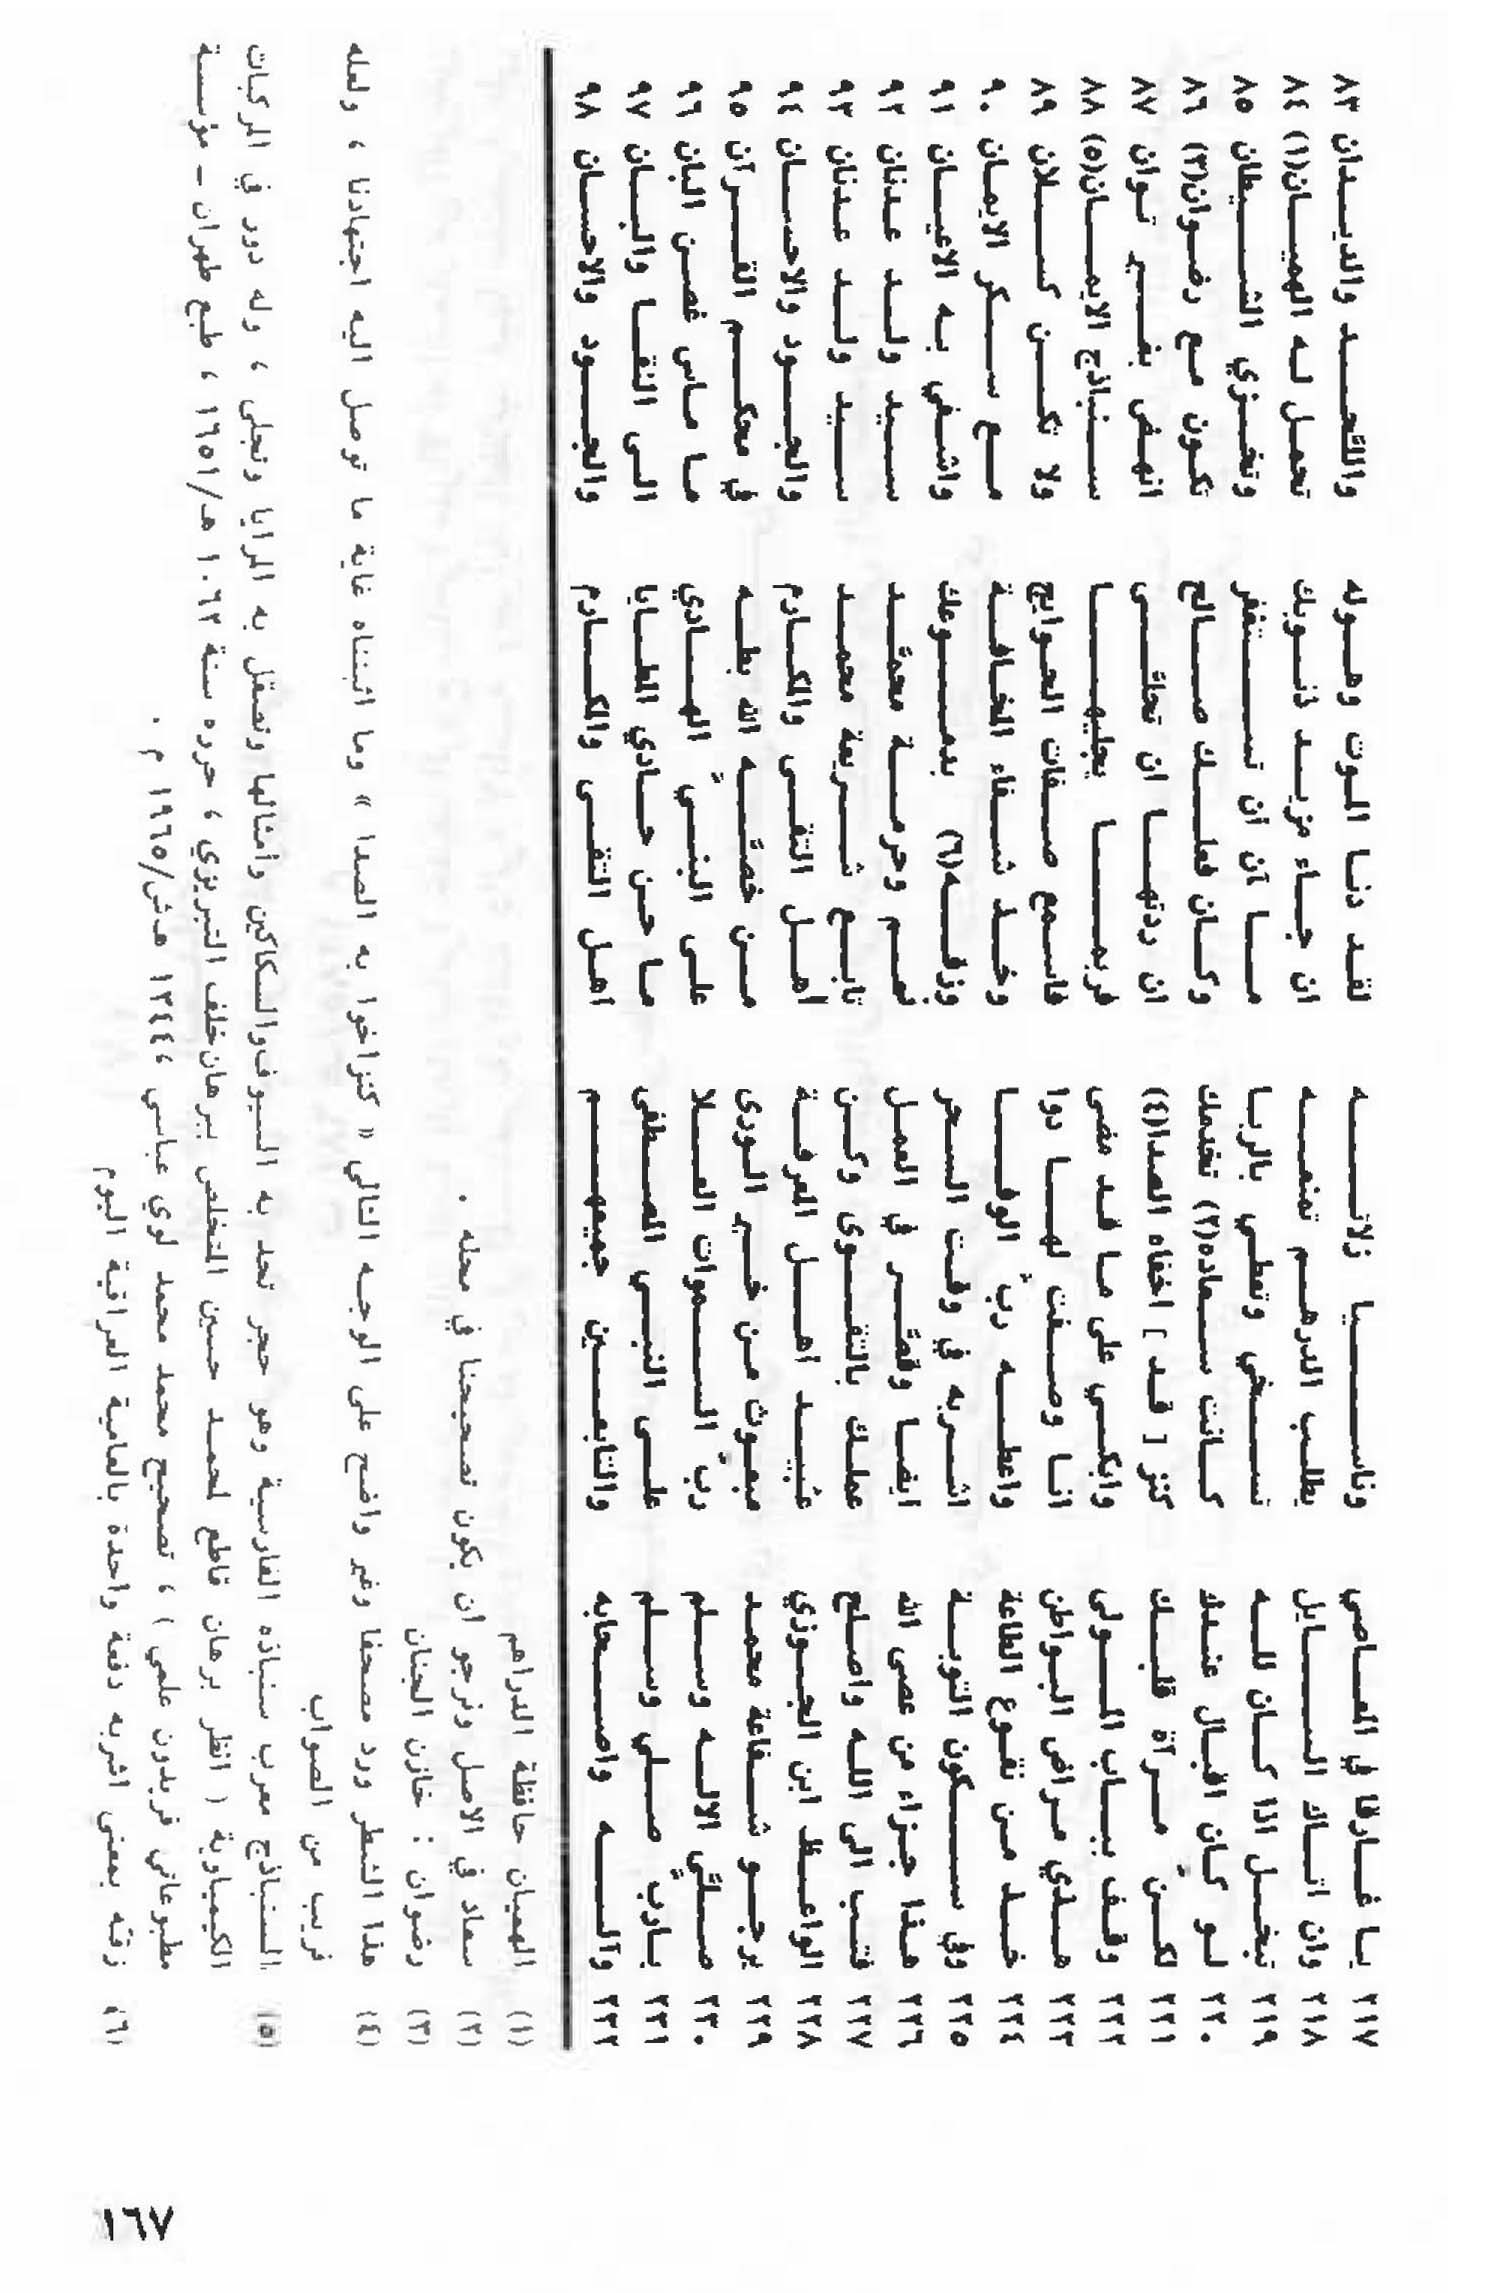 ٢١٧ يا غارقا في المعاصي وناسيا زلاته لقد دنا الموت وهوله واللّحد والديدان ٨٣
٢١٨ وان اتاك السايل يطلب الدرهم تمنعه ان جاء مزيد ذنوبك تحمل له الهميان(١) ٨٤
٢١٩ تبخل اذا كان لله تسخي وتعطي بالربا ما آن أن تستغفر وتخزي الشيطان ٨٥
٢٢٠ لو كان اقبال عندك كانت سعاده(٢) تخدمك وكان فعلك صالح تكون مع رضوان(٣) ٨٦
٢٢١ لكنّ مرآة قلبك كنز [ قد ] اخفاه الصدا(٤) ان ردتها ان تجلّى انهض بغير توان ٨٧
٢٢٢ وقف بباب المولى وابكي على ما قد مضى فربما يجليها سنباذج الايمان(٥) ٨٨
٢٢٣ هذي مراض البواطن انا وصفت لها دوا فاسمع صفات الحوايج ولا تكن كسلان ٨٩
٢٢٤ خذ من نقوع الطاعة واعطه ربّ الوفا وخذ شفاء المخافة مع سكر الايمان ٩٠
٢٢٥ وفي سكون التوبة اشربه في وقت السحر وزقه(٦) بدموعك واشفي به الاعيان ٩١
٢٢٦ هذا جزاء من عصى الله ايضا وقصّر في العمل نعم وحرمة محمّد سيد ولد عدنان ٩٢
٢٢٧ فتب الى الله واصلح عملك بالتقوى وكن تابع شريعة محمد سيد ولد عدنان ٩٣
٢٢٨ الواعظ ابن الجوزي عُبيد اهل المعرفة أهل التقى والمكارم والجود والاحسان ٩٤
٢٢٩ يرجو شفاعة محمد مبعوث من خير الورى من خصّه الله بطه في محكم القرآن ٩٥
٢٣٠ صلّى الاله وسلم ربّ السموات العلا على النبيّ الهادي ما ماس غصن البان ٩٦
٢٣١ ياربّ صلي وسلم على النبي المصطفى ما حن حادي المطايا الى النقا والبان ٩٧
٢٣٢ وآله واصحابه والتابعين جميعهم اهل التقى والمكارم والجود والاحسان ٩٨
(١) الهميان حافظة الدراهم
(٢) سعاد في الاصل ونرجو ان يكون تصحيحنا في محله .
(٣) رضوان : خازن الجنان
(٤) هذا الشطر ورد مصحفا وغير واضح على الوجه التالي « كنزاخوا به الصدا » وما اثبتناه غاية ما توصل اليه اجتهادنا ، ولعله
قريب من الصواب
(٥) السنباذج معرب سنباذه الفارسية وهو حجر تحد به السيوف والسكاكين وأمثالها وتصقل به المرايا وتجلى ، وله دور في المركبات
الكيمياوية ( انظر برهان قاطع لمحمد حسين المتخلص ببرهان خلف التبريزي ، حرره سنة ١٠٦٣ هـ/١٦٥١ ، طبع طهران - مؤسسة
مطبوعاتي فريدون علمي ) ، تصحيح محمد محمد لوي عباسي ،١٣٤٤ هـش/١٩٦٥ م .
(٦) زقّه بمعنى اشربه دفعة واحدة بالعامية العراقية اليوم
١٦٧